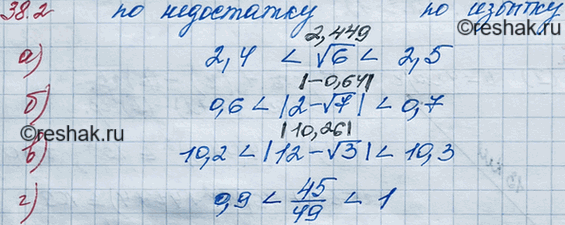 38.2 по недостатку по избытку
2,449
а) 2,4 < √6 < 2,5
|-0,64|
б) 0,6 < |2-√7| < 0,7
|10,26|
в) 10,2 < |12-√3| < 10,3
г) 0,9 < 45/49 < 1
©reshak.ru
©reshak.ru
©reshak.ru